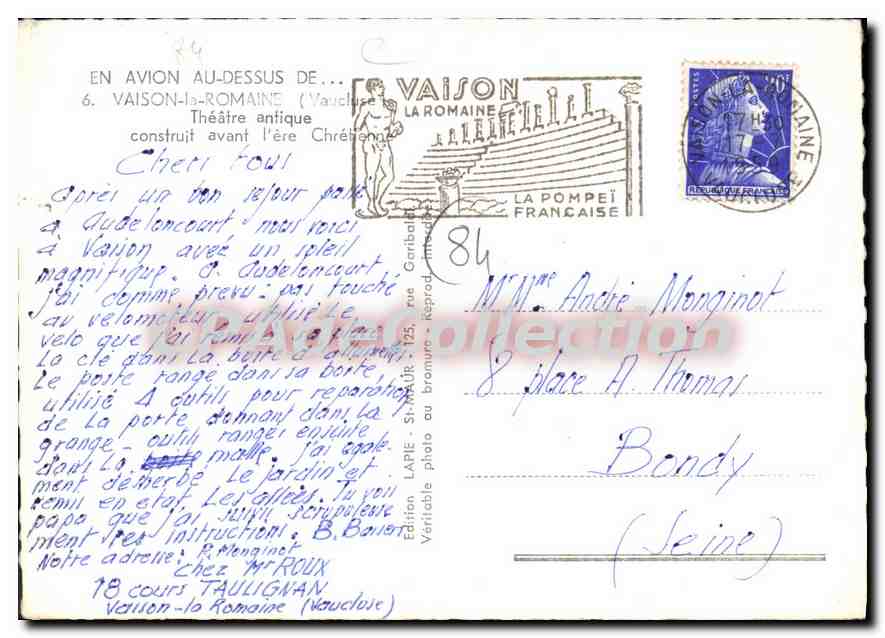 EN AVION AU-DESSUS DE...
6. VAISON-la-ROMAINE (Vaucluse
Théâtre antique
construit avant l'ère Chrétienne
VAISON
LA ROMAINE
LA POMPEÏ
FRANÇAISE
VAISON-LA-ROMAINE
17H30
17
POSTES
20F
REPUBLIQUE FRANÇAISE
Chers tous
Après un bon séjour passé
à Audeloncourt nous voici
à Vaison avec un soleil
magnifique. A Audeloncourt
j'ai comme prévu: pas touché
au vélomoteur, utilisé Le
vélo que j'ai remis à sa place
La clé dans La boite à allumettes.
Le poste rangé dans sa boite,
utilisé 4 outils pour reparation
de La porte donnant dans La
grange - outils rangés ensuite
dans La malle. j'ai égale-
ment désherbé Le jardin et
remis en état Les allées. Tu vois
papa que j'ai suivi scrupuleuse
ment tes instructions. B. Baisers
Notre adresse: P. Monginot
chez Mr ROUX
18 cours TAULIGNAN
Vaison-la Romaine (Vaucluse)
84
Mr Mme André Monginot
8 place A. Thomas
Bondy
(Seine)
Edition LAPIE - St-MAUR - 125, rue Garibaldi
Véritable photo au bromure - Reprod. interdite
CPAdeCollection